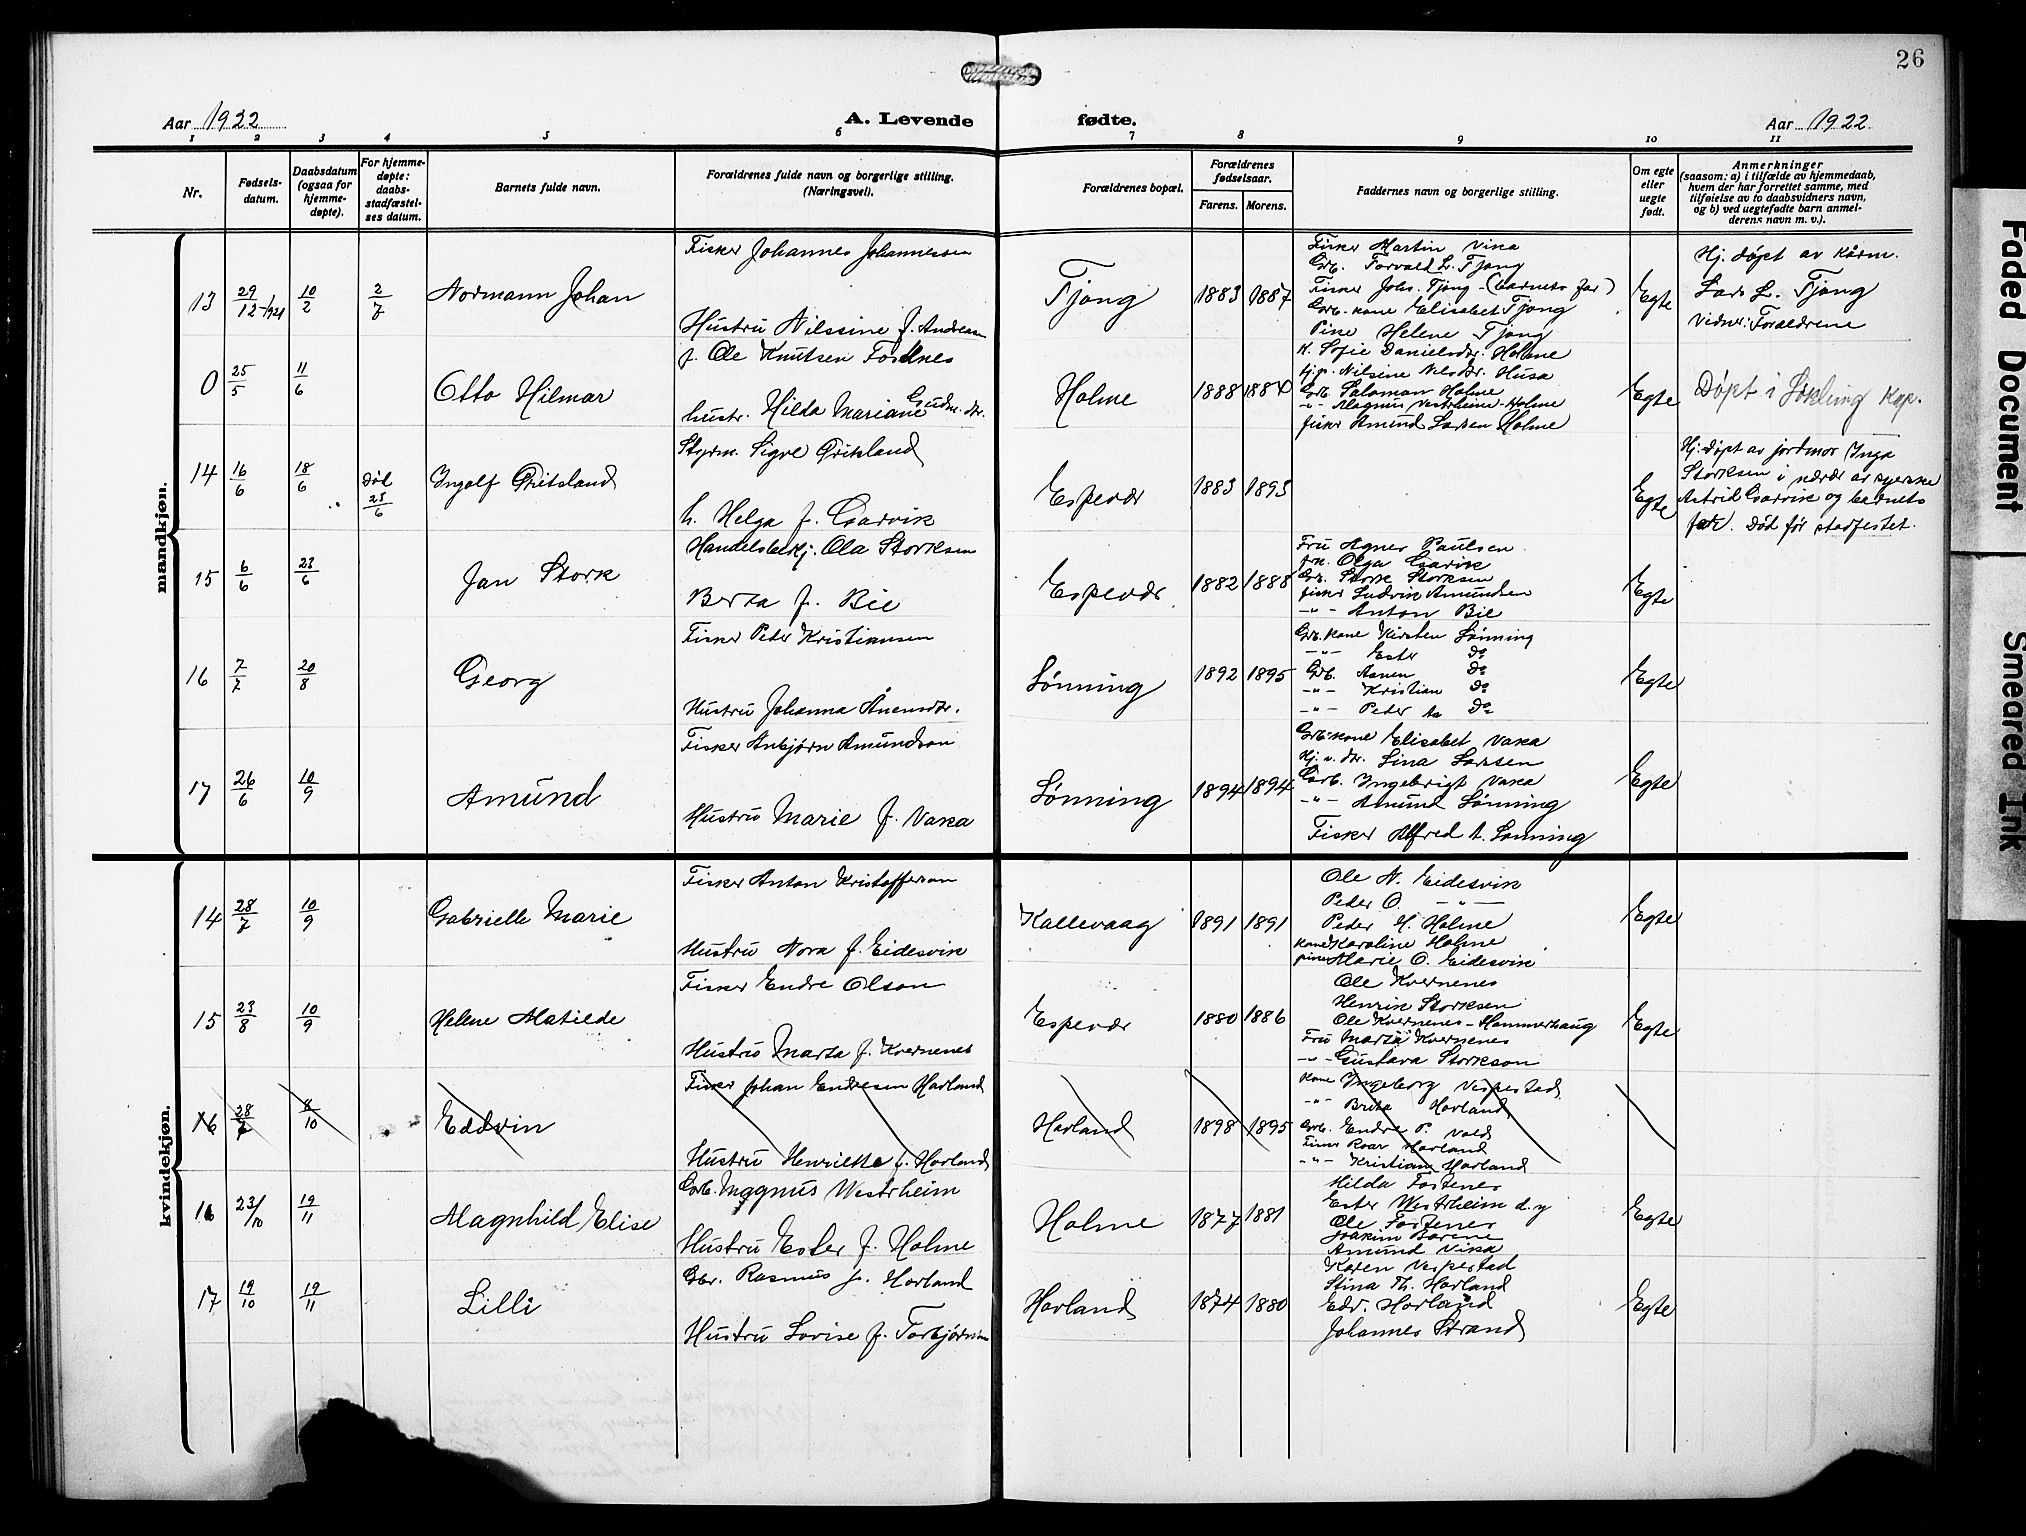 26
Aar 1922
A. Levende fødte.
Aar 1922.
1 2 3 4 5 6 7 8 9 10 11
Nr.
Fødsels-
datum.
Daabsdatum
(ogsaa for
hjemme-
døpte).
For hjemme-
døpte:
daabs-
stadfæstel-
ses datum.
Barnets fulde navn.
Forældrenes fulde navn og borgerlige stilling.
(Næringsvei).
Forældrenes bopæl.
Forældrenes
fødselsaar.
Farens. Morens.
Faddernes navn og borgerlige stilling.
Om egte
eller
uegte
født.
Anmerkninger
(saasom: a) i tilfælde av hjemmedaab,
hvem der har forrettet samme, med
tilføielse av to daabsvidners navn,
og b) ved uegtefødte barn anmel-
derens navn m. v.).
mandkjøn.
13 29/12-1921 10/2 2/7 Normann Johan
Fisker Johannes Johannessen
Hustru Nilssine f. Andreasen
Tjong 1883 1887
Fisker Martin Vika
Grb. Torvald L. Tjong
Fisker Johs. Tjong - (barnets far)
Grb. kone Elisabet Tjong
Pike Helene Tjong
Egte
Hj. døpt av Kårm.
Lars L. Tjong
Vidner: Forældrene
0 25/5 11/6 Otto Hilmar
f. Ole Knutsen Fostnes
hustr. Hilda Mariane Gudm. dr.
Holme 1888 1884
K. Sofie Danielsdr. Holme
Hj. p. Nilsine Nilsdr. Husa
Grb. Salomon Holme
-"- Magnus Vestrheim-Holme
fisker Amund Larsen Holme
Egte
Døpt i Løkling Kap.
14 16/6 18/6 død 23/6 Ingolf Gritsland
Styrm. Sigve Gritsland
h. Helga f. Garvik
Espevær 1883 1893
Egte
Hj. døpt av jordmor Inga
Storksen i nærvær av syerske
Astrid Garvik og barnets
far. Død før stadfestet.
15 6/6 23/6 Jan Stork
Handelsbetj. Ola Storksen
Berta f. Bie
Espevær 1882 1888
Fru Agnes Paulsen
frk. Olga Garvik
Gr. Stork Storksen
fisker Ludvik Amundsen
-"- Anton Bie
Egte
16 7/7 20/8 Georg
Fisker Peder Kristiansen
Hustru Johanna Ånensdr.
Lønning 1892 1895
Grb. kone Kirsten Lønning
-"- Ester do
Grb. Aanen do
-"- Kristian do
-"- Peder do
Egte
17 26/6 10/9 Amund
Fisker Anbjørn Amundson
Hustru Marie f. Vaka
Lønning 1894 1894
Grb. kone Elisabet Vaka
Hj. v. dr. Lina Larsen
Grb. Ingebrigt Vaka
-"- Amund Lønning
Fisker Alfred A. Lønning
Egte
kvindekjøn.
14 28/7 10/9 Gabrielle Marie
Fisker Anton Kristofferson
Hustru Nora f. Eidesvik
Kallevaag 1891 1891
Ole N. Eidesvik
Peder O. -"-
Peder H. Holme
Kone Karoline Holme
pike Marie O. Eidesvik
Egte
15 23/8 10/9 Helene Matilde
Fisker Endre Olson
Hustru Marta f. Kvernenes
Espevær 1880 1886
Ole Kvernenes
Henrik Storksen
Ole Kvernenes-Hammerhaug
Fru Marta Kvernenes
-"- Gustava Storkson
Egte
16 28/7 8/10 Eddvin
Fisker Johan Endresen Hovland
Hustru Henriette f. Hovland
Hovland 1898 1895
Kone Ingeborg Vespestad
-"- Brita Hovland
Grb. Endre P. Vold
Fisker Roar Hovland
-"- Kristian Hovland
16 23/10 19/11 Magnhild Elise
Grb. Magnus Westrheim
Hustru Ester f. Holme
Holme 1877 1881
Hilda Fostenes
Ester Westrheim d.y
Ole Fostenes
Joakim Børene
Amund Vika
Egte
17 19/10 19/11 Lilli
Gbr. Rasmus J. Hovland
Hustru Lovise f. Torbjørnsen
Hovland 1874 1880
Karen Vespestad
Stina Th. Hovland
Edv. Hovland
Johannes Strand
Egte
Faded Document
Smeared Ink